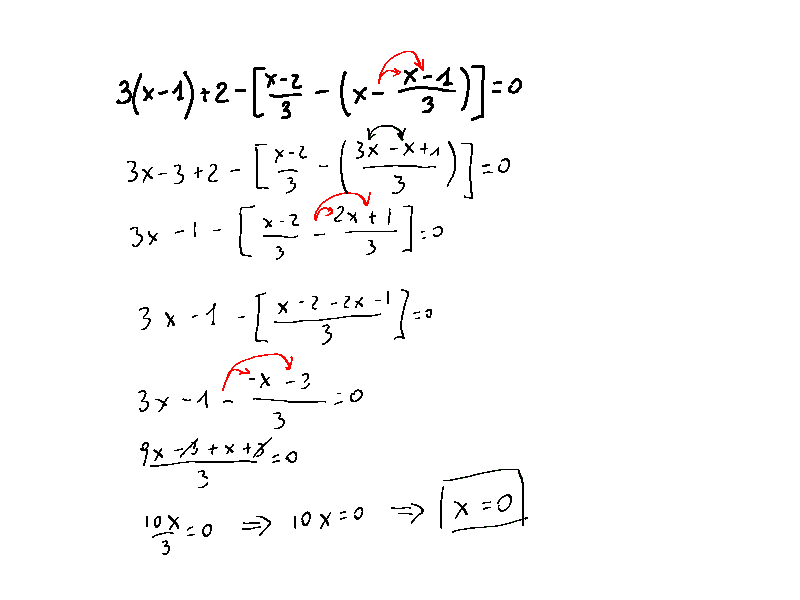 3(x-1)+2-[(x-2)/3-(x-(x-1)/3)]=0
3x-3+2-[(x-2)/3-((3x-x+1)/3)]=0
3x-1-[(x-2)/3-(2x+1)/3]=0
3x-1-[(x-2-2x-1)/3]=0
3x-1-(-x-3)/3=0
(9x-3+x+3)/3=0
10x/3=0 ⇒ 10x=0 ⇒ x=0